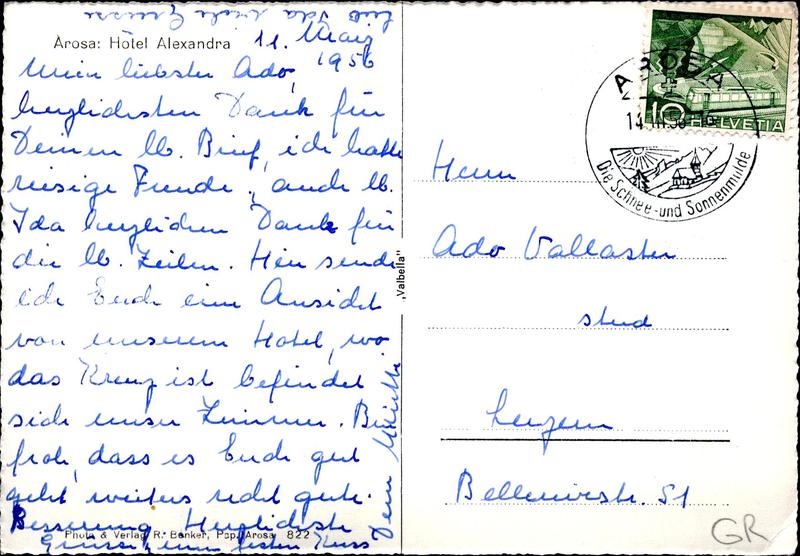 Lieb Ida viele Grüsse
Arosa: Hôtel Alexandra
11. März
1956
Mein liebster Ado,
herzlichsten Dank für
Deinen lb. Brief, ich hatte
riesige Freude, auch lb.
Ida herzlichen Dank für
die lb. Zeilen. Hier sende
ich Euch eine Ansicht
von unserem Hotel, wo
das Kreuz ist befindet
sich unser Zimmer. Bin
froh, dass es Euch gut
geht weiters recht gute
Besserung Herzlichste
Grüsse einen festen Kuss
Dein
Photo & Verlag R. Benker, Pap. Arosa 822
„Valbella"
AROSA
14.III.56-19
Die Schnee- und Sonnenmulde
10 HELVETIA
Herrn
Ado Vallaster
stud
Luzern
Bellerivestr. 51
GR